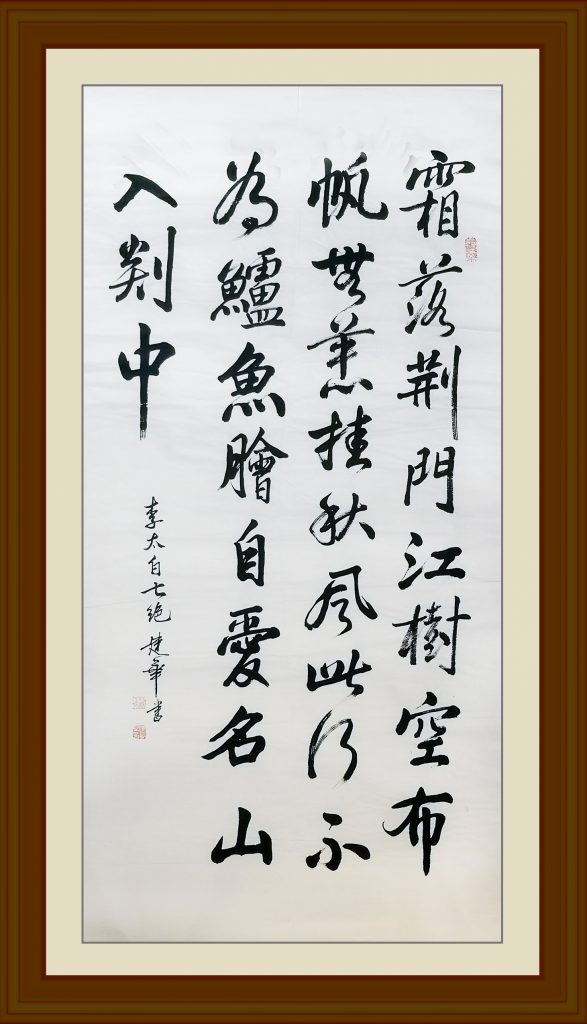 霜落荊門江樹空布
帆無恙挂秋風此行不
為鱸魚膾自愛名山
入剡中
李太白七絕 華書